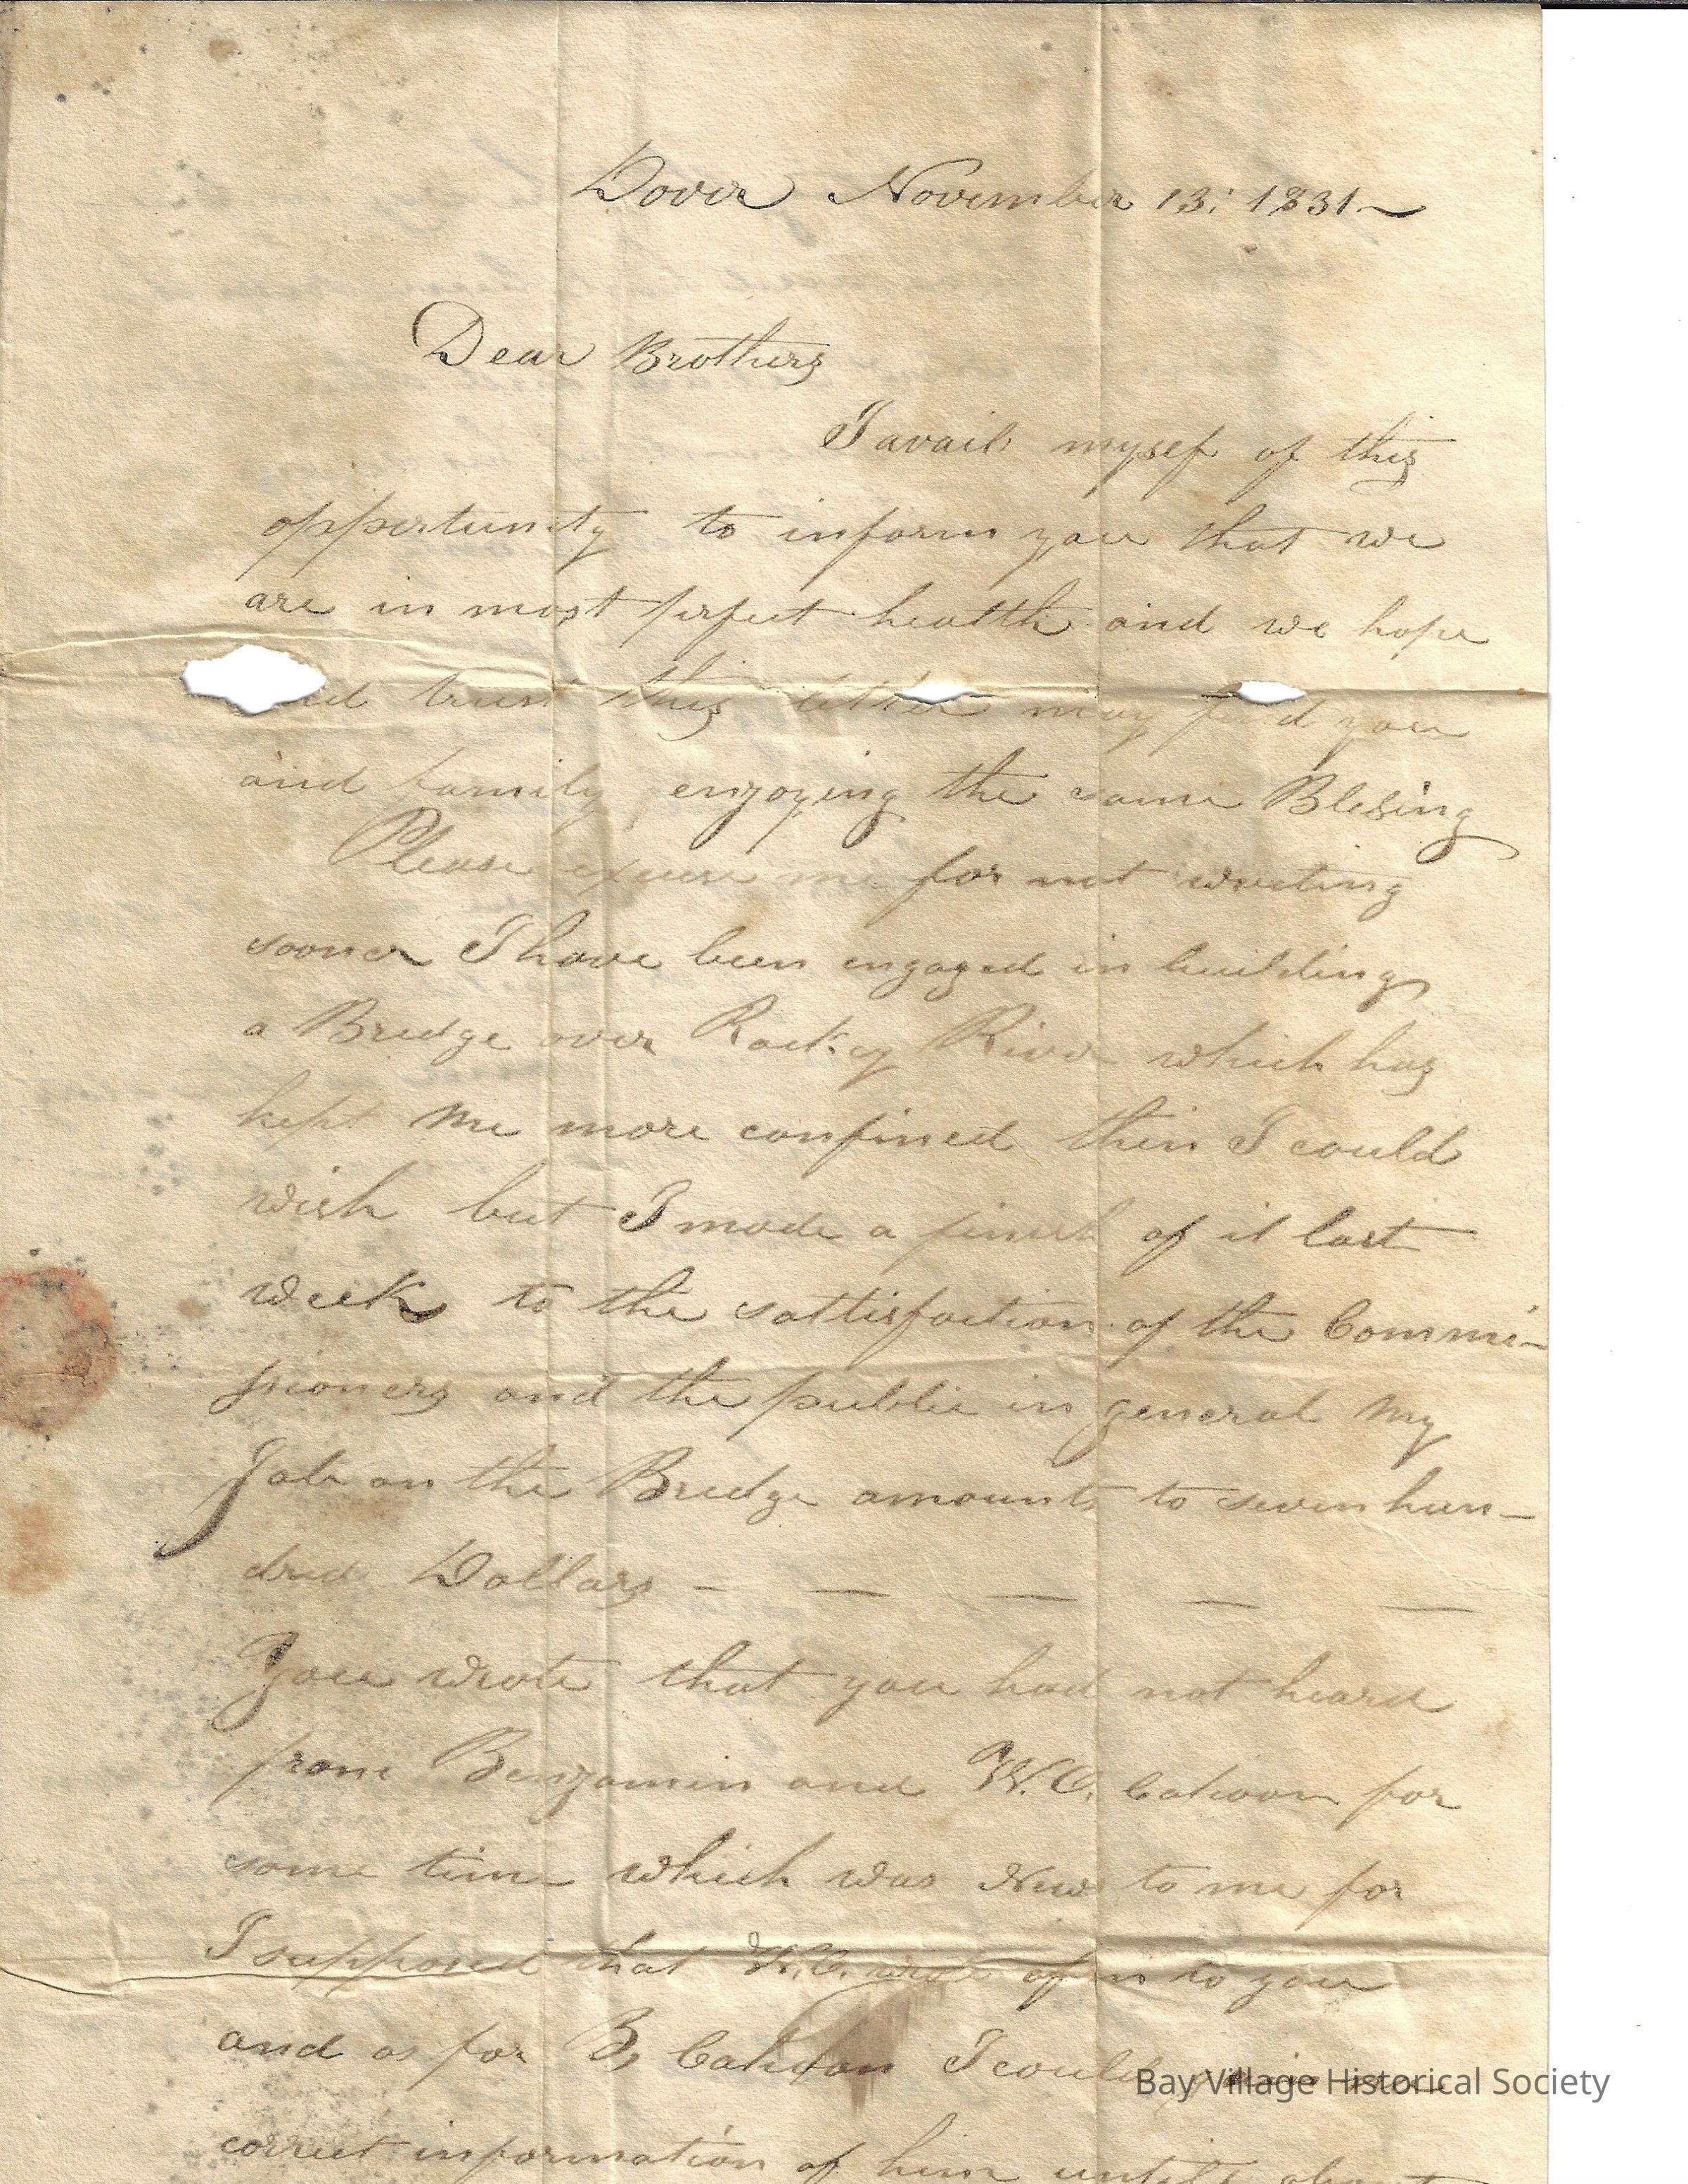 Dover November 13: 1831 ~
Dear Brothers
I avail mysef of this
oppertunity to inform you that we
are in most perfect health and we hope
trust this letter may find you
and family enjoying the same Blesing
Please excuse me for not writing
sooner I have been engaged in building
a Bridge over Rockey River which has
kept me more confined then I could
wish but I made a finish of it last
week to the sattisfaction of the Commi-
ssioners and the public in general My
Job on the Bridge amounts to seven hun-
dred Dollars - — — — —
You wrote that you had not heard
from Benjamin and W. C. Cahoon for
some time which was New to me for
I supposed that W. C. to you
and as for B, Cahoon I could
correct information of him untill about
Bay Village Historical Society